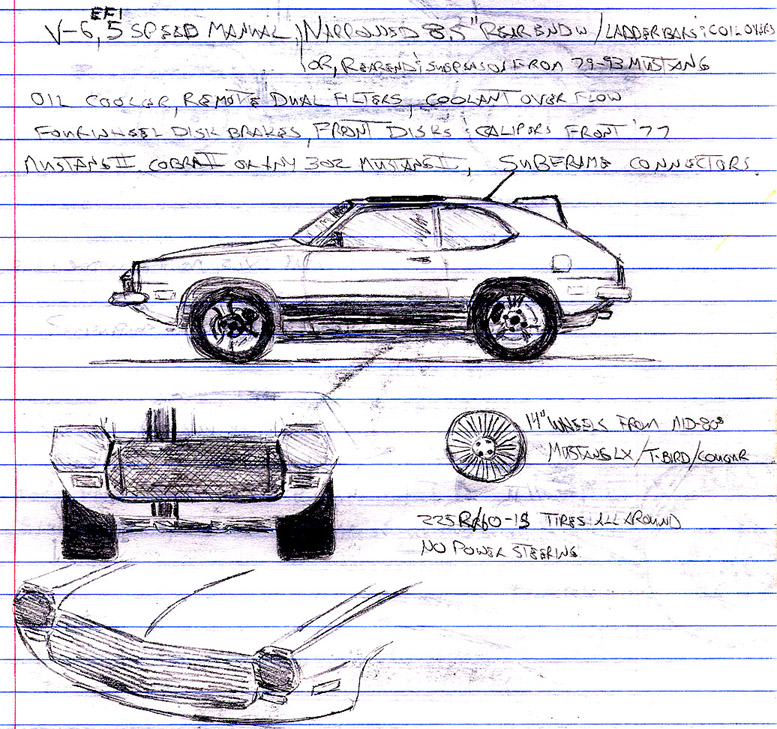 EFI
V-6, 5 SPEED MANUAL, NARROWED 8.8" REAR END W/LADDER BARS & COILOVERS
OR, REAREND & SUSPENSION FROM 79-93 MUSTANG
OIL COOLER, REMOTE DUAL FILTERS, COOLANT OVER FLOW
FOUR WHEEL DISK BRAKES, FRONT DISKS & CALIPERS FRONT '77
MUSTANG II COBRA II OR ANY 302 MUSTANG II, SUBFRAME CONNECTORS
14" WHEELS FROM MID-80s
MUSTANG LX/T-BIRD/COUGAR
225R/60-15 TIRES ALL AROUND
NO POWER STEERING